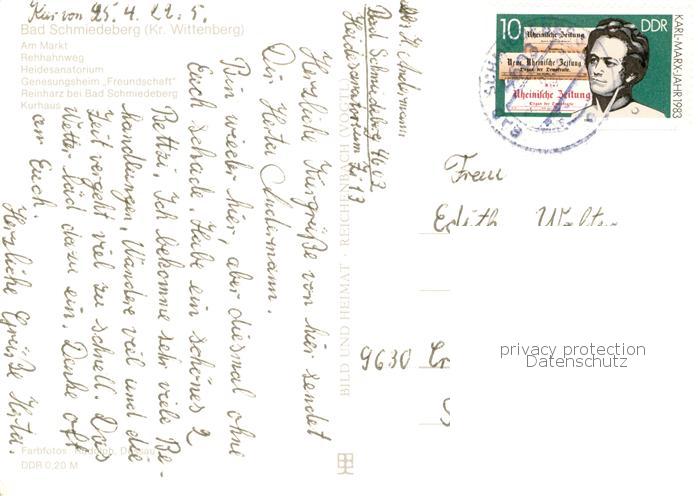 Kur von 25.4. 22.5.
Bad Schmiedeberg (Kr. Wittenberg)
Am Markt
Rehhahnweg
Heidesanatorium
Genesungsheim „Freundschaft"
Reinharz bei Bad Schmiedeberg
Kurhaus
Herzliche Kurgrüße von hier sendet
Dir Herta
Bin wieder hier, aber diesmal ohne
Euch schade. Habe ein schönes 2
Bettzi. Ich bekomme sehr viele Be-
handlungen, Wandere viel und die
Zeit vergeht viel zu schnell. Das
Wetter läd dazu ein. Denke oft
an Euch.
Herzliche Grüße Herta.
Farbfotos: Rudolph, Dessau
DDR 0,20 M
BILD UND HEIMAT · REICHENBACH (VOGTL)
Bad Schmiedeberg 4602
Heidesanatorium Zi 13
10
DDR
KARL-MARX-JAHR 1983
Rheinische Zeitung
Neue Rheinische Zeitung
Organ der Demokratie
Rheinische Zeitung
Organ der Demokratie
Frau
Edith Walter
9630
privacy protection
Datenschutz